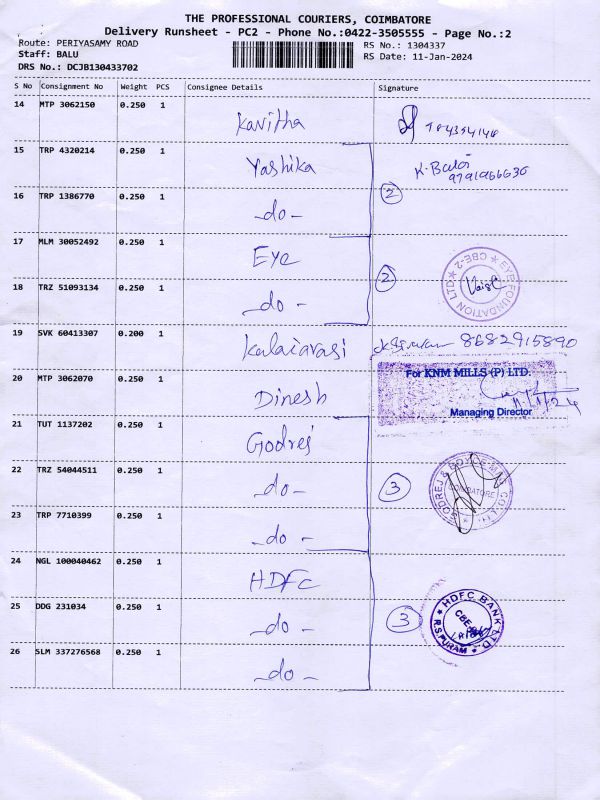 THE PROFESSIONAL COURIERS, COIMBATORE
Delivery Runsheet - PC2 - Phone No.:0422-3505555 - Page No.:2
Route: PERIYASAMY ROAD
RS No.: 1304337
Staff: BALU
RS Date: 11-Jan-2024
DRS No.: DCJB130433702
S No Consignment No Weight PCS Consignee Details Signature
14 MTP 3062150 0.250 1 Kavitha
15 TRP 4320214 0.250 1 Yashika K. Balaji
16 TRP 1386770 0.250 1 -do- 2
17 MLM 30052492 0.250 1 Eye
EYE FOUNDATION LTD ★ CBE-2 ★
18 TRZ 51093134 0.250 1 -do- 2
19 SVK 60413307 0.200 1 Kalaiarasi 8682915890
20 MTP 3062070 0.250 1 Dinesh
For KNM MILLS (P) LTD.
Managing Director
21 TUT 1137202 0.250 1 Godrej
22 TRZ 54044511 0.250 1 -do- 3
GODREJ & BOYCE MFG CO. LTD.
COIMBATORE
23 TRP 7710399 0.250 1 -do-
24 NGL 100040462 0.250 1 HDFC
25 DDG 231034 0.250 1 -do- 3
★ HDFC BANK LTD. ★ R.S.PURAM
26 SLM 337276568 0.250 1 -do-